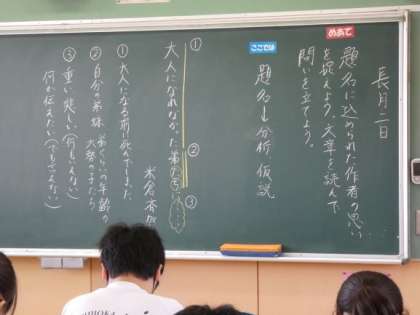 長月二日
めあて
題名に込められた作者の思い
を捉えよう。文章を読んで
問いを立てよう。
ここでは
題名 分析、仮説
① ② ③
大人になれなかった弟たちに……
米倉斉加年
① 大人になる前に死んでしまった
② 自分の弟妹 弟ぐらいの年齢の
大勢の子たち
③ 重い、悲しい(何も言えない)
何か伝えたい(でも言えない)